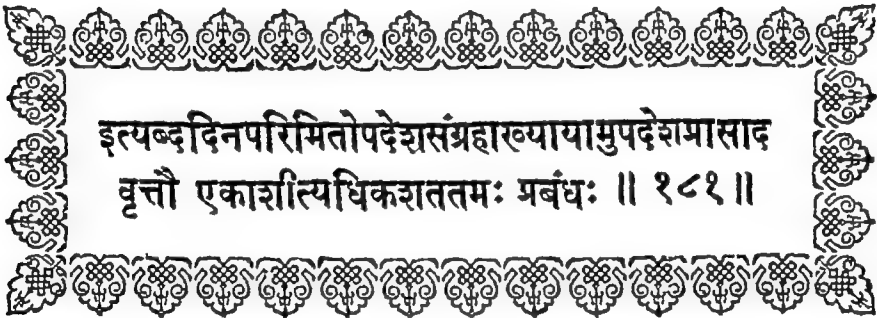 इत्यब्ददिनपरिमितोपदेशसंग्रहाख्यायामुपदेशप्रासाद
वृत्तौ एकाशीत्यधिकशततमः प्रबंधः ॥ १८१ ॥